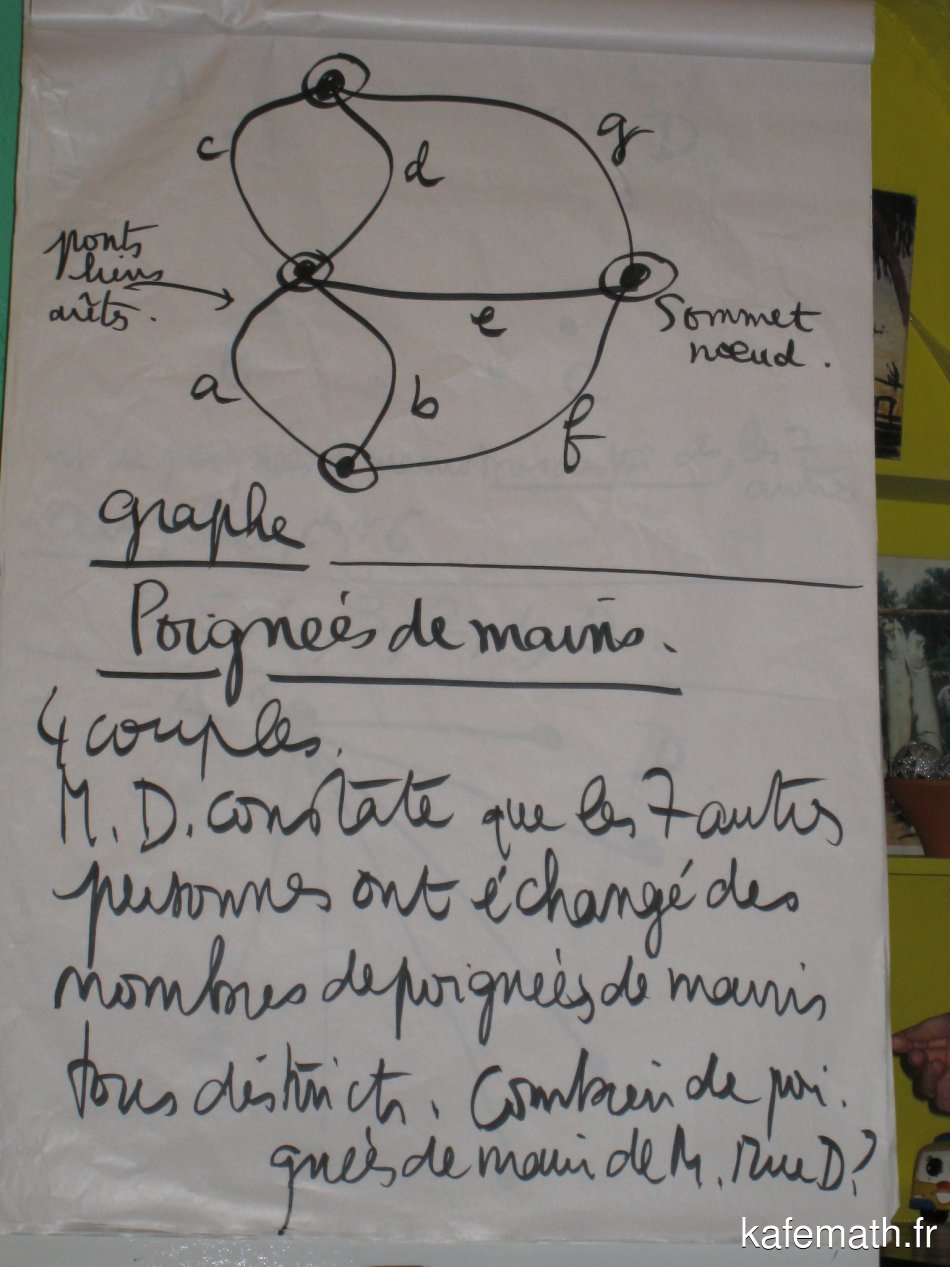 c
d
g
ponts
liens
arêts.
e
Sommet
nœud.
a
b
f
graphe
Poignées de mains.
4 couples.
M. D. constate que les 7 autres
personnes ont échangé des
nombres de poignées de mains
tous distincts. Combien de poi.
gnées de main de M. Mme D?
kafemath.fr